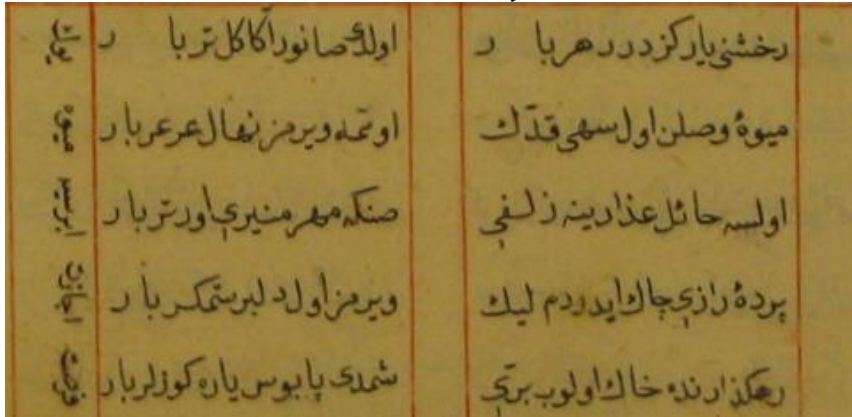 رخشنی یار کزدرر هر با ر اولدی صانور آکا کل تر با ر یوك
میوۀ وصلن اول سهی قدّك ویرمز نهال عرعر بار میوه
اولسه حائل عذارینه زلفی صنکه مهر منیری اورتر بار ابرسیه
پردۀ رازی چاك ایدردم لیك ویرمز اول دلبر ستمکر بار اجازت
رهکذارنده خاك اولوب برتی شمدی پابوس یاره کوزلر بار فرصت